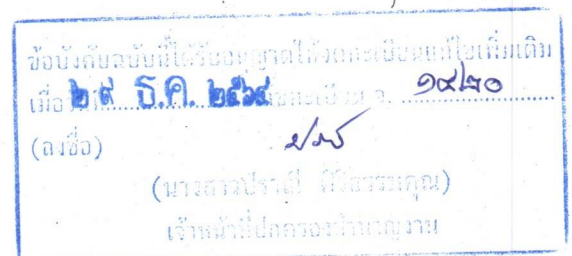 ข้อบังคับฉบับนี้ได้รับอนุญาตให้จดทะเบียนแก้ไขเพิ่มเติม
เมื่อวันที่ ๒๙ ธ.ค. ๒๕๖๔ เลขทะเบียน จ. ๑๔๒๐
(ลงชื่อ)
(นางสาวปราณี
เจ้าหน้าที่ปกครองชำนาญงาน